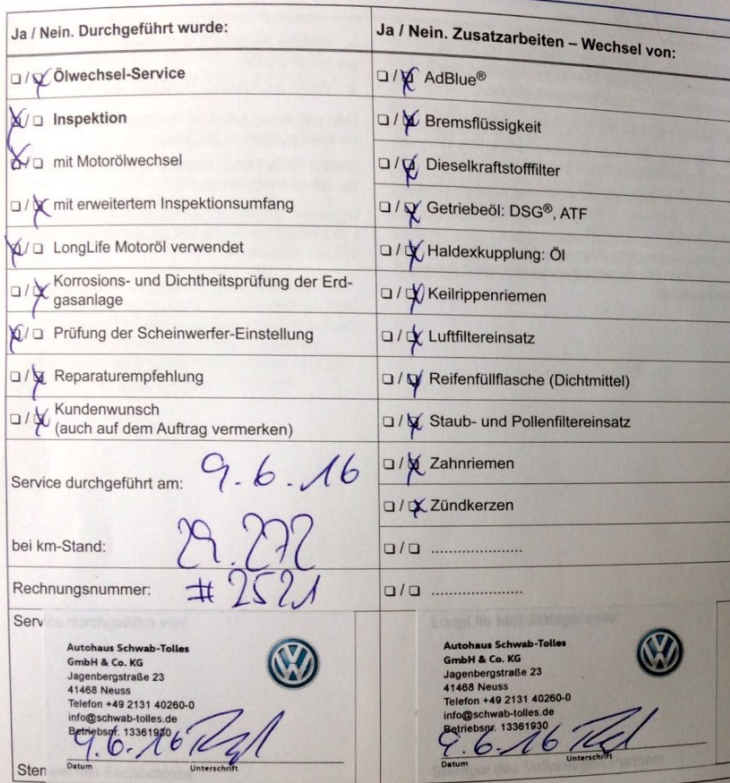 Ja / Nein. Durchgeführt wurde:
❏ / ❏ Ölwechsel-Service
❏ / ❏ Inspektion
❏ / ❏ mit Motorölwechsel
❏ / ❏ mit erweitertem Inspektionsumfang
❏ / ❏ LongLife Motoröl verwendet
❏ / ❏ Korrosions- und Dichtheitsprüfung der Erd-
gasanlage
❏ / ❏ Prüfung der Scheinwerfer-Einstellung
❏ / ❏ Reparaturempfehlung
❏ / ❏ Kundenwunsch
(auch auf dem Auftrag vermerken)
Service durchgeführt am: 9.6.16
bei km-Stand: 29.272
Rechnungsnummer: # 2521
Ja / Nein. Zusatzarbeiten – Wechsel von:
❏ / ❏ AdBlue®
❏ / ❏ Bremsflüssigkeit
❏ / ❏ Dieselkraftstofffilter
❏ / ❏ Getriebeöl: DSG®, ATF
❏ / ❏ Haldexkupplung: Öl
❏ / ❏ Keilrippenriemen
❏ / ❏ Luftfiltereinsatz
❏ / ❏ Reifenfüllflasche (Dichtmittel)
❏ / ❏ Staub- und Pollenfiltereinsatz
❏ / ❏ Zahnriemen
❏ / ❏ Zündkerzen
❏ / ❏ ......................
❏ / ❏ ......................
Serv
Autohaus Schwab-Tolles
GmbH & Co. KG
Jagenbergstraße 23
41468 Neuss
Telefon +49 2131 40260-0
info@schwab-tolles.de
Betriebsnr. 13361930
9.6.16
Datum Unterschrift
Stem
Autohaus Schwab-Tolles
GmbH & Co. KG
Jagenbergstraße 23
41468 Neuss
Telefon +49 2131 40260-0
info@schwab-tolles.de
Betriebsnr. 13361930
9.6.16
Datum Unterschrift